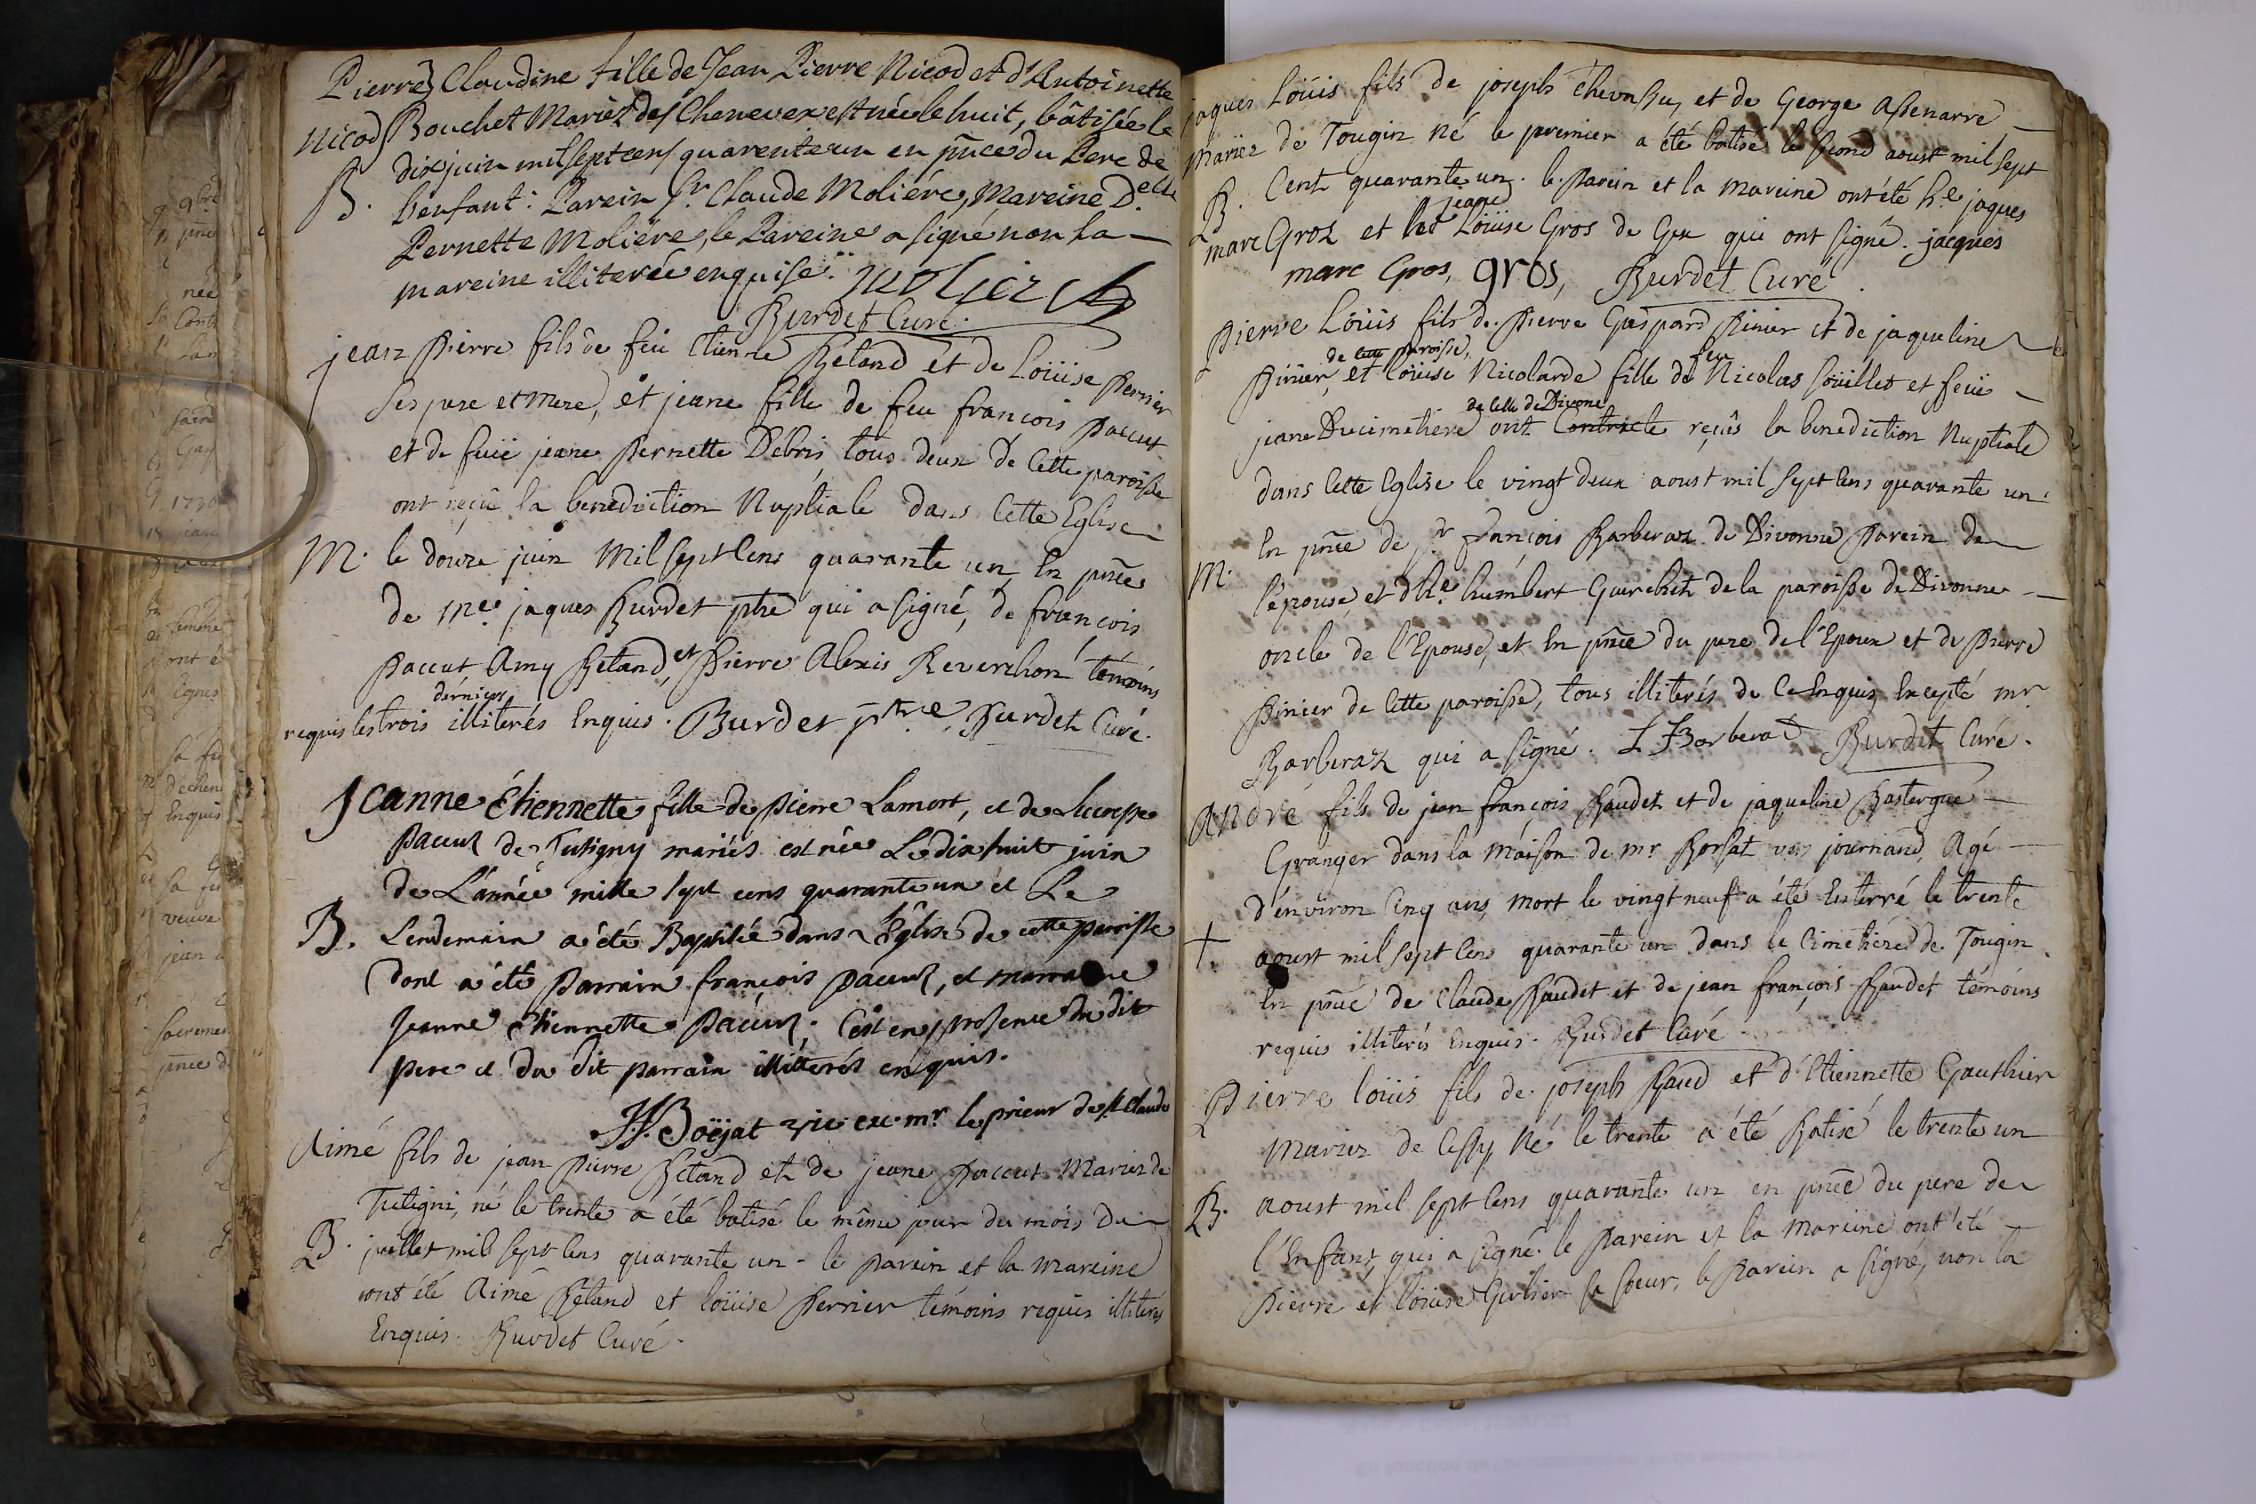 Pierre Claudine fille de Jean Pierre Nicod et d'Antoinette
Nicod Bouchet Mariéz des Chenevex est née le huit, bâtisée le
B. dix juin mil sept cens quarente un en pñce du Pere de
l'enfant: Parein Sr. Claude Moliére, Mareine D.elle
Pernette Moliére, le Pareine a signé non la —
mareine illiterée enquise. Molier
Burdet Curé.
jean Pierre fils de feu Etienne Béland et de Loüise Perrier
ses pere et mere, et jeane fille de feu françois Paccut
et de fuië jeane Pernette Debris tous deux de Cette paroisse
ont reçû la benediction Nuptiale dans Cette Eglise
M. le douze juin Mil sept Cens quarante un En pñce
de Me. jaques Burdet ptre qui a signé, de françois
Paccut Amy Béland, et Pierre Alexis Reverchon témoins
derniers
requis les trois illiterés Enquis. Burdet ptre. Burdet Curé.
Jeanne Étiennette fille de Pierre Lamort, et de Lucresse
Pacuz de Tutigny mariés est née Le dix huit juin
de L'année mille sept cens quarante un et Le
B. Lendemain a été Baptisée dans L'Église de cette paroisse
dont a été Parrain françois Pacuz, et marraine
Jeanne Etiennette Pacuz; C'est en presence du dit
pere et du dit parrain illiterés enquis.
J.J. Boëjat vic ex mr. le prieur de st Claude
Aimé fils de jean Pierre Béland et de jeane Paccut Mariez de
Tutigni, né le trente a été batisé le même jour du mois de
B. juillet mil sept Cens quarante un - le parein et la mareine
ont été Aimé Béland et loüise Perrier témoins requis illiterés
Enquis. Burdet Curé.
jaques Loüis fils de joseph Chevassu, et de George Assenarre —
Mariez de Tougin né le premier a été batisé le second aoust mil sept
B. Cent quarante un. le Parein et la mareine ont été h.e jaques
jeane
marc Gros et Loüise Gros de Gex qui ont signé. jacques
marc Gros, gros, Burdet Curé.
Pierre Loüis fils de Pierre Gaspard Pinier et de jaqueline
de cette paroisse, feu
Pinier, et Loüise Nicolarde fille de Nicolas Soüillet et feuë —
de Celle de Divone
jeane Ducimetiére ont Contracte reçûs la benediction Nuptiale
dans Cette Eglise le vingt deux aoust mil sept Cens quarante un.
En pñce de sr françois Barberaz de Divonne Parein de
M. l'épouse, et d'h.e humbert Guerchet de la paroisse de Divonne —
oncle de l'Epouse, et En pñce du pere de l'Epoux et de Pierre
Pinier de Cette paroisse, tous illiterés de Ce Enquis Excepté mr.
Barberaz qui a signé. f Barberat Burdet Curé.
André fils de jean françois Baudet et de jaqueline Bastergue —
Granger dans la Maison de mr. Borsat journand, Agé —
d'environ Cinq ans, mort le vingt neuf a été Enterré le trente
+. aoust mil sept Cens quarante un dans le Cimetiére de Tougin
En pñce de Claude Baudet et de jean françois Baudet témoins
requis illiterés Enquis. Burdet Curé
Pierre loüis fils de joseph Baud et d'Etiennette Gauthier
Mariez de Cessy Né le trente a été Batisé le trente un
B. Aoust mil sept Cens quarante un en pñce du pere de
l'Enfant, qui a signé. le Parein et la Mareine ont été —
Pierre et loüise sa soeur, le Parein a signé, non la